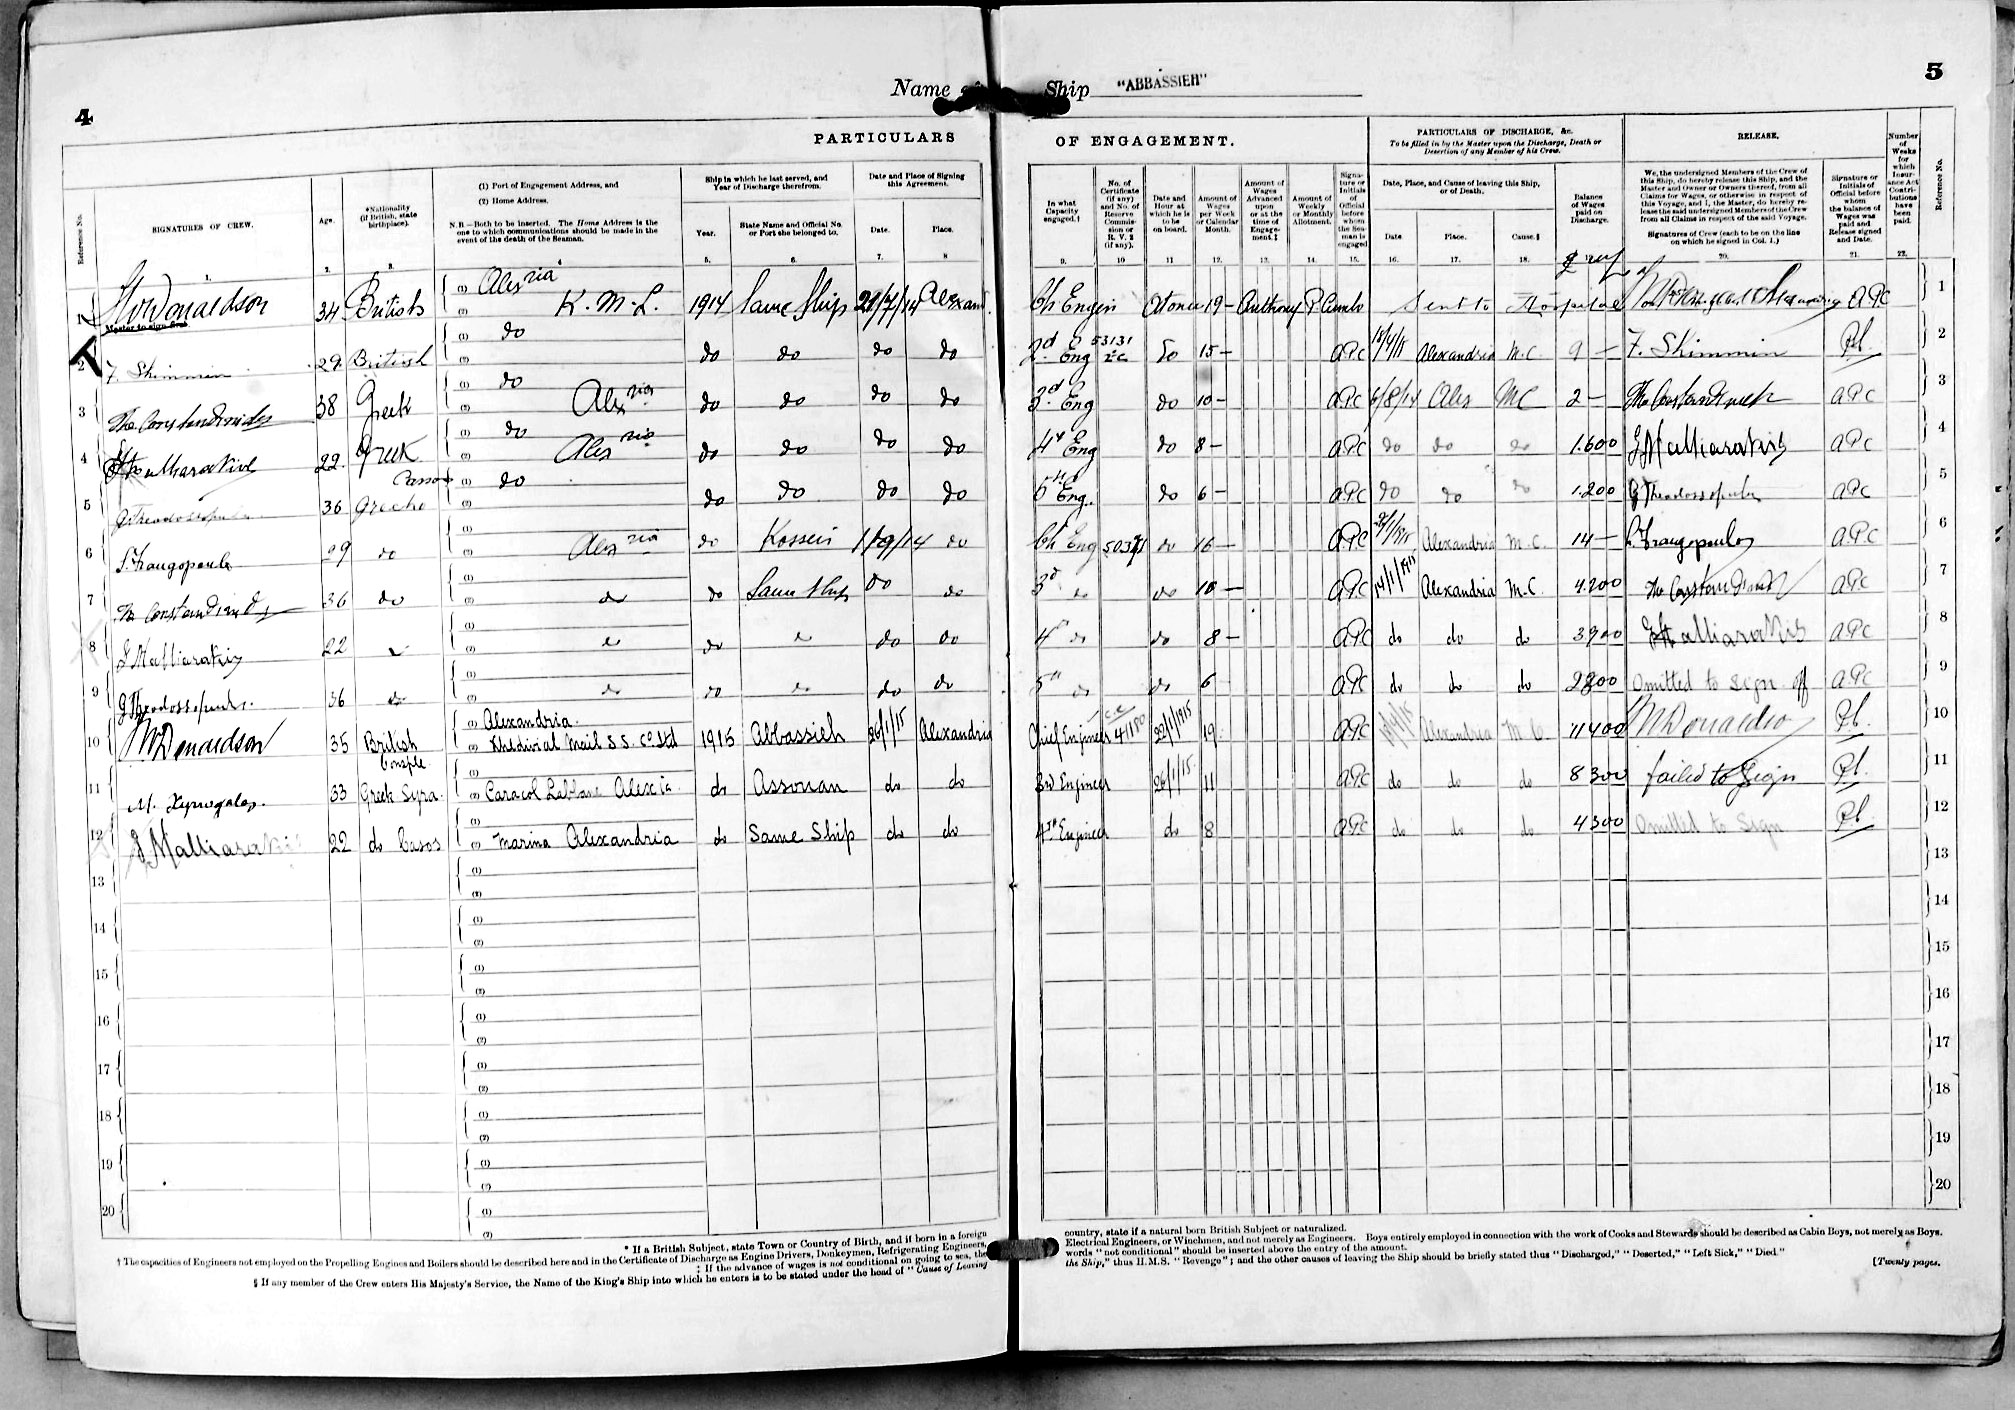 4
Name of Ship "ABBASSIEH"
5
PARTICULARS OF ENGAGEMENT.
PARTICULARS OF DISCHARGE, &c.
To be filled in by the Master upon the Discharge, Death or Desertion of any Member of his Crew.
RELEASE.
Number of Weeks for which Insurance Act Contributions have been paid.
Reference No.
Reference No.
SIGNATURES OF CREW.
Age.
*Nationality (if British, state birthplace).
(1) Port of Engagement Address, and
(2) Home Address.
N.B.—Both to be inserted. The Home Address is the one to which communications should be made in the event of the death of the Seaman.
Ship in which he last served, and Year of Discharge therefrom.
Year.
State Name and Official No. or Port she belonged to.
Date and Place of Signing this Agreement.
Date.
Place.
In what Capacity engaged.†
No. of Certificate (if any) and No. of Reserve Commission or R. V. 2 (if any).
Date and Hour at which he is to be on board.
Amount of Wages per Week or Calendar Month.
Amount of Wages Advanced upon or at the time of Engagement.‡
Amount of Weekly or Monthly Allotment.
Signature or Initials of Official before whom the Seaman is engaged
Date, Place, and Cause of leaving this Ship, or of Death.
Date.
Place.
Cause.§
Balance of Wages paid on Discharge.
We, the undersigned Members of the Crew of this Ship, do hereby release this Ship, and the Master and Owner or Owners thereof, from all Claims for Wages, or otherwise in respect of this Voyage, and I, the Master, do hereby release the said undersigned Members of the Crew from all Claims in respect of the said Voyage.
Signatures of Crew (each to be on the line on which he signed in Col. 1.)
Signature or Initials of Official before whom the balance of Wages was paid and Release signed and Date.
1. 2. 3. 4 5. 6. 7. 8 9. 10 11 12. 13. 14. 15. 16. 17. 18. 20. 21. 22.
1 McDonaldson 34 British (1) Alexria (2) K. M. L. 1914 Same Ship 21/7/14 Alexand. Ch Engin At once 19 – Sent to Hospital APC 1
Master to sign first
2 F. Shimmin 29 British (1) do (2) do do do do 2d Eng 53131 2c do 15 – APC Alexandria M.C. 9 – F. Shimmin 2
3 The Constandinides 38 Greek (1) do (2) Alexria do do do do 3d Eng do 10 – APC 6/8/14 Alex MC 2 – APC 3
4 22 Greek (1) do (2) Alexria do do do do 4th Eng do 8 – APC do do do 1.600 J Malliarakis APC 4
5 G Theodossopulo 36 Greche Cassos (1) do (2) do do do do 5th Eng. do 6 – APC do do do 1.200 G Theodossopulo APC 5
6 S. Frangopoulo 29 do (1) (2) Alexria do Kosseir 1/9/14 do Ch Eng do 16 – APC Alexandria M.C. 14 – S. Frangopoulo APC 6
7 The Constandinides 36 do (1) (2) do do Same Ship do do 3d do do 10 – APC 14/1/1915 Alexandria M.C. 4.200 APC 7
8 J Malliarakis 22 (1) (2) do do do do 4th do do 8 – APC do do do 3900 J Malliarakis APC 8
9 G Theodossopulo. 36 do (1) (2) do do do do do 5th do do 6 APC do do do 2800 Omitted to sign off APC 9
10 McDonaldson 35 British (1) Alexandria. (2) Khedivial Mail S.S. Co. Ltd 1915 Abbassieh 26/1/15 Alexandria Chief Engineer 41180 22/1/1915 19 APC Alexandria M.C. 11400 McDonaldson 10
11 M. Xyrogalos. 33 Greek Syra. (1) (2) Caracol Labbane Alexia. do Assouan do do 3rd Engineer 26/1/15. 11 APC do do do 8300 failed to Sign 11
12 J Malliarakis 22 do Casos (1) (2) Marina Alexandria do Same Ship do do 4th Engineer do 8 APC do do do 4300 Omitted to Sign 12
13 (1) (2) 13
14 (1) (2) 14
15 (1) (2) 15
16 (1) (2) 16
17 (1) (2) 17
18 (1) (2) 18
19 (1) (2) 19
20 (1) (2) 20
* If a British Subject, state Town or Country of Birth, and if born in a foreign country, state if a natural born British Subject or naturalized.
† The capacities of Engineers not employed on the Propelling Engines and Boilers should be described here and in the Certificate of Discharge as Engine Drivers, Donkeymen, Refrigerating Engineers, Electrical Engineers, or Winchmen, and not merely as Engineers. Boys entirely employed in connection with the work of Cooks and Stewards should be described as Cabin Boys, not merely as Boys.
‡ If the advance of wages is not conditional on going to sea, the words "not conditional" should be inserted above the entry of the amount.
§ If any member of the Crew enters His Majesty's Service, the Name of the King's Ship into which he enters is to be stated under the head of "Cause of Leaving the Ship," thus H.M.S. "Revenge"; and the other causes of leaving the Ship should be briefly stated thus "Discharged," "Deserted," "Left Sick," "Died."
[Twenty pages.